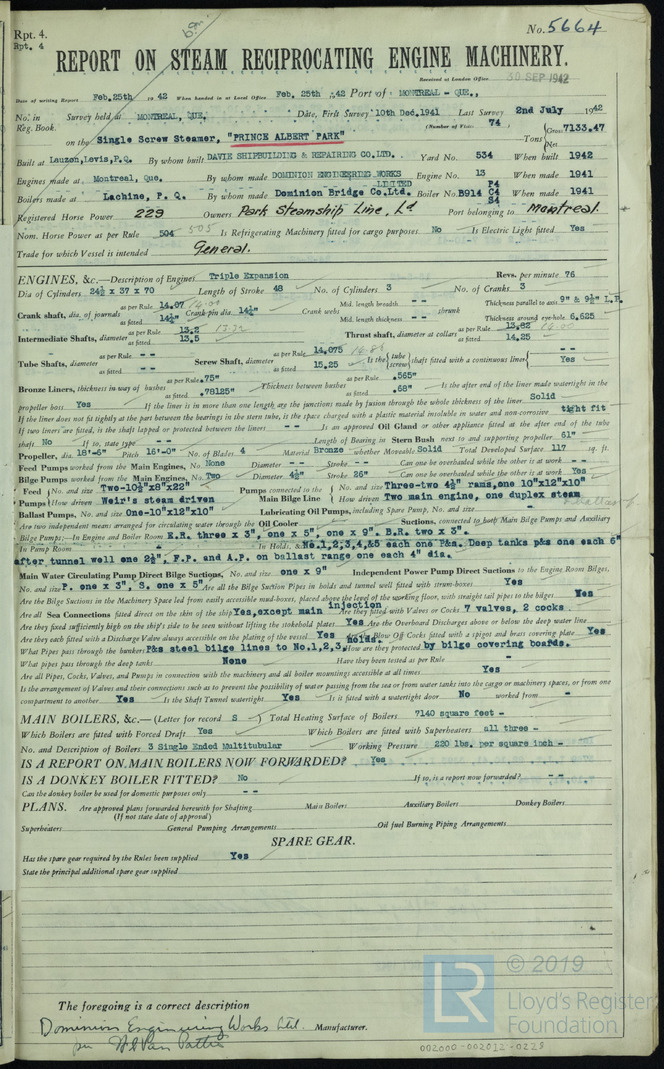 Rpt. 4.
Rpt. 4
No. 5664
REPORT ON STEAM RECIPROCATING ENGINE MACHINERY.
Received at London Office 30 SEP 1942
Date of writing Report Feb.25th 19 42 When handed in at Local Office Feb. 25th .42 Port of MONTREAL - QUE.,
No. in Survey held at MONTREAL, QUE. Date, First Survey 10th Dec.1941 Last Survey 2nd July 1942
Reg. Book. (Number of Visits 74
on the Single Screw Steamer, "PRINCE ALBERT PARK" Tons Gross 7133.47
Net
Built at Lauzon,Levis,P.Q. By whom built DAVIE SHIPBUILDING & REPAIRING CO.LTD. Yard No. 534 When built 1942
Engines made at Montreal, Que. By whom made DOMINION ENGINEERING WORKS LIMITED Engine No. 13 When made 1941
Boilers made at Lachine, P. Q. By whom made Dominion Bridge Co.Ltd. Boiler No. B914 P4 C4 S4 When made 1941
Registered Horse Power 229 Owners Park Steamship Line, Ld Port belonging to Montreal.
Nom. Horse Power as per Rule 504 505 Is Refrigerating Machinery fitted for cargo purposes No Is Electric Light fitted Yes
Trade for which Vessel is intended General.
ENGINES, &c.—Description of Engines Triple Expansion Revs. per minute 76
Dia of Cylinders 24½ x 37 x 70 Length of Stroke 48 No. of Cylinders 3 No. of Cranks 3
Crank shaft, dia. of journals as per Rule 14.07 as fitted 14¼" Crank pin dia. 14¼" Crank webs Mid. length breadth -- Mid. length thickness -- shrunk Thickness parallel to axis 9" & 9½" L.P. Thickness around eye-hole 6.625
Intermediate Shafts, diameter as per Rule 13.2 as fitted 13.5 Thrust shaft, diameter at collars as per Rule 13.82 as fitted 14.25
Tube Shafts, diameter as per Rule -- as fitted -- Screw Shaft, diameter as per Rule 14.075 as fitted 15.25 Is the {tube screw} shaft fitted with a continuous liner { -- Yes
Bronze Liners, thickness in way of bushes as per Rule .75" as fitted .78125" Thickness between bushes as per Rule .565" as fitted .68" Is the after end of the liner made watertight in the
propeller boss Yes If the liner is in more than one length are the junctions made by fusion through the whole thickness of the liner Solid
If the liner does not fit tightly at the part between the bearings in the stern tube, is the space charged with a plastic material insoluble in water and non-corrosive tight fit
If two liners are fitted, is the shaft lapped or protected between the liners -- Is an approved Oil Gland or other appliance fitted at the after end of the tube
shaft No If so, state type -- Length of Bearing in Stern Bush next to and supporting propeller 61"
Propeller, dia. 18'-6" Pitch 16'-0" No. of Blades 4 Material Bronze whether Moveable Solid Total Developed Surface 117 sq. ft.
Feed Pumps worked from the Main Engines, No. None Diameter -- Stroke -- Can one be overhauled while the other is at work --
Bilge Pumps worked from the Main Engines, No. Two Diameter 4½" Stroke 26" Can one be overhauled while the other is at work Yes
Feed Pumps { No. and size Two-10½"x8"x22" How driven Weir's steam driven Pumps connected to the Main Bilge Line { No. and size Three-two 4½" rams,one 10"x12"x10" How driven Two main engine, one duplex steam
Ballast Pumps, No. and size One-10"x12"x10" Lubricating Oil Pumps, including Spare Pump, No. and size
Are two independent means arranged for circulating water through the Oil Cooler Suctions, connected to both Main Bilge Pumps and Auxiliary
Bilge Pumps;—In Engine and Boiler Room E.R. three x 3", one x 5", one x 9". B.R. two x 3".
In Pump Room In Holds, &c. No.1,2,3,4,&5 each one P&s. Deep tanks p&s one each 6"
after tunnel well one 2½", F.P. and A.P. on ballast range one each 4" dia.
Main Water Circulating Pump Direct Bilge Suctions, No. and size one x 9" Independent Power Pump Direct Suctions to the Engine Room Bilges,
No. and size P. one x 3", S. one x 5" Are all the Bilge Suction Pipes in holds and tunnel well fitted with strum-boxes Yes
Are the Bilge Suctions in the Machinery Space led from easily accessible mud-boxes, placed above the level of the working floor, with straight tail pipes to the bilges Yes
Are all Sea Connections fitted direct on the skin of the ship Yes,except main injection Are they fitted with Valves or Cocks 7 valves, 2 cocks
Are they fixed sufficiently high on the ship's side to be seen without lifting the stokehold plates Yes Are the Overboard Discharges above or below the deep water line
Are they each fitted with a Discharge Valve always accessible on the plating of the vessel Yes Are the Blow Off Cocks fitted with a spigot and brass covering plate Yes
What Pipes pass through the bunkers P&s steel bilge lines to No.1,2,3, holds. How are they protected by bilge covering boards.
What pipes pass through the deep tanks None Have they been tested as per Rule -
Are all Pipes, Cocks, Valves, and Pumps in connection with the machinery and all boiler mountings accessible at all times Yes
Is the arrangement of Valves and their connections such as to prevent the possibility of water passing from the sea or from water tanks into the cargo or machinery spaces, or from one
compartment to another Yes Is the Shaft Tunnel watertight Yes Is it fitted with a watertight door No worked from -
MAIN BOILERS, &c.—(Letter for record S ) Total Heating Surface of Boilers 7140 square feet -
Which Boilers are fitted with Forced Draft Yes Which Boilers are fitted with Superheaters all three -
No. and Description of Boilers 3 Single Ended Multitubular Working Pressure 220 lbs. per square inch -
IS A REPORT ON MAIN BOILERS NOW FORWARDED? Yes
IS A DONKEY BOILER FITTED? No If so, is a report now forwarded? --
Can the donkey boiler be used for domestic purposes only --
PLANS. Are approved plans forwarded herewith for Shafting Main Boilers Auxiliary Boilers Donkey Boilers
(If not state date of approval)
Superheaters General Pumping Arrangements Oil fuel Burning Piping Arrangements
SPARE GEAR.
Has the spare gear required by the Rules been supplied Yes
State the principal additional spare gear supplied
The foregoing is a correct description
Dominion Engineering Works Ltd. Manufacturer.
LR © 2019
Lloyd's Register
Foundation
002000-002012-0228